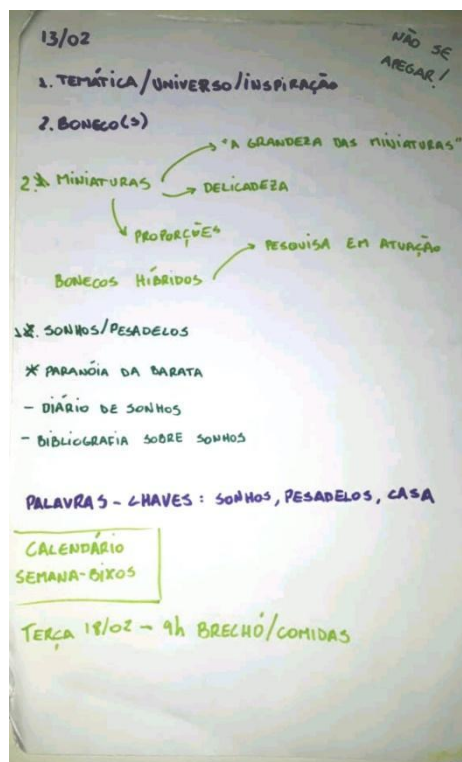 13/02
NÃO SE
APEGAR!
1. TEMÁTICA/UNIVERSO/INSPIRAÇÃO
2. BONECO(S)
"A GRANDEZA DAS MINIATURAS"
2. MINIATURAS
DELICADEZA
PROPORÇÕES
PESQUISA EM ATUAÇÃO
BONECOS HÍBRIDOS
1. SONHOS/PESADELOS
* PARANÓIA DA BARATA
- DIÁRIO DE SONHOS
- BIBLIOGRAFIA SOBRE SONHOS
PALAVRAS-CHAVES: SONHOS, PESADELOS, CASA
CALENDÁRIO
SEMANA-BIXOS
TERÇA 18/02 - 9h BRECHÓ/COMIDAS